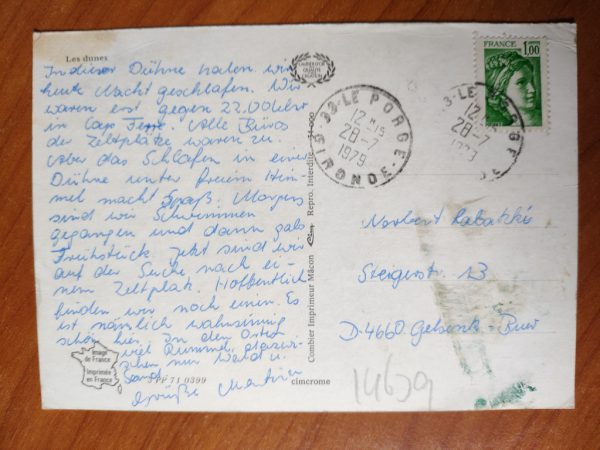 Les dunes
In dieser Dühne haben wir
heute Nacht geschlafen. Wir
waren erst gegen 22.00 Uhr
in Cap Ferre. Alle Büros
der Zeltplätze waren zu.
Aber das Schlafen in einer
Dühne unter freiem Him-
mel macht Spaß. Morgens
sind wir Schwimmen
gegangen und dann gabs
Frühstück. Jetzt sind wir
auf der Suche nach ei-
nem Zeltplatz. Hoffentlich
finden wir noch einen. Es
ist nämlich wahnsinnig
schön hier. In den Orten
viel Rummel,
nur Wald u.
Sand.
Grüße Martin
Image
de France
Imprimée
en France
71 0399
cimcrome
Combier Imprimeur Mâcon Cim Repro. Interdite
FRANCE
1,00
33-LE PORGE
12 H 15
28-7
1979
GIRONDE
33-LE PORGE
12 H 15
28-7
1979
Norbert
Steigerstr. 13
D-4660 Gelsenk-Buer
14639